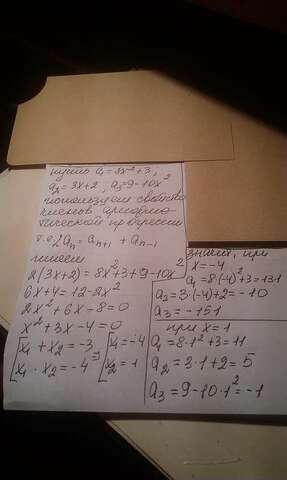 пусть a₁ = 8x²+3,
a₂ = 3x+2, a₃=9-10x²
используем свойство
членов арифме-
тической прогрессии
т.е. 2aₙ = aₙ₊₁ + aₙ₋₁
имеем
2(3x+2) = 8x²+3+9-10x²
6x+4=12-2x²
2x²+6x-8=0
x²+3x-4=0
[x₁+x₂=-3 ⇒ [x₁=-4
[x₁·x₂=-4 [x₂=1
значит, при
x=-4
a₁=8·(-4)²+3=131
a₂=3·(-4)+2=-10
a₃=-151
при x=1
a₁=8·1²+3=11
a₂=3·1+2=5
a₃=9-10·1²=-1